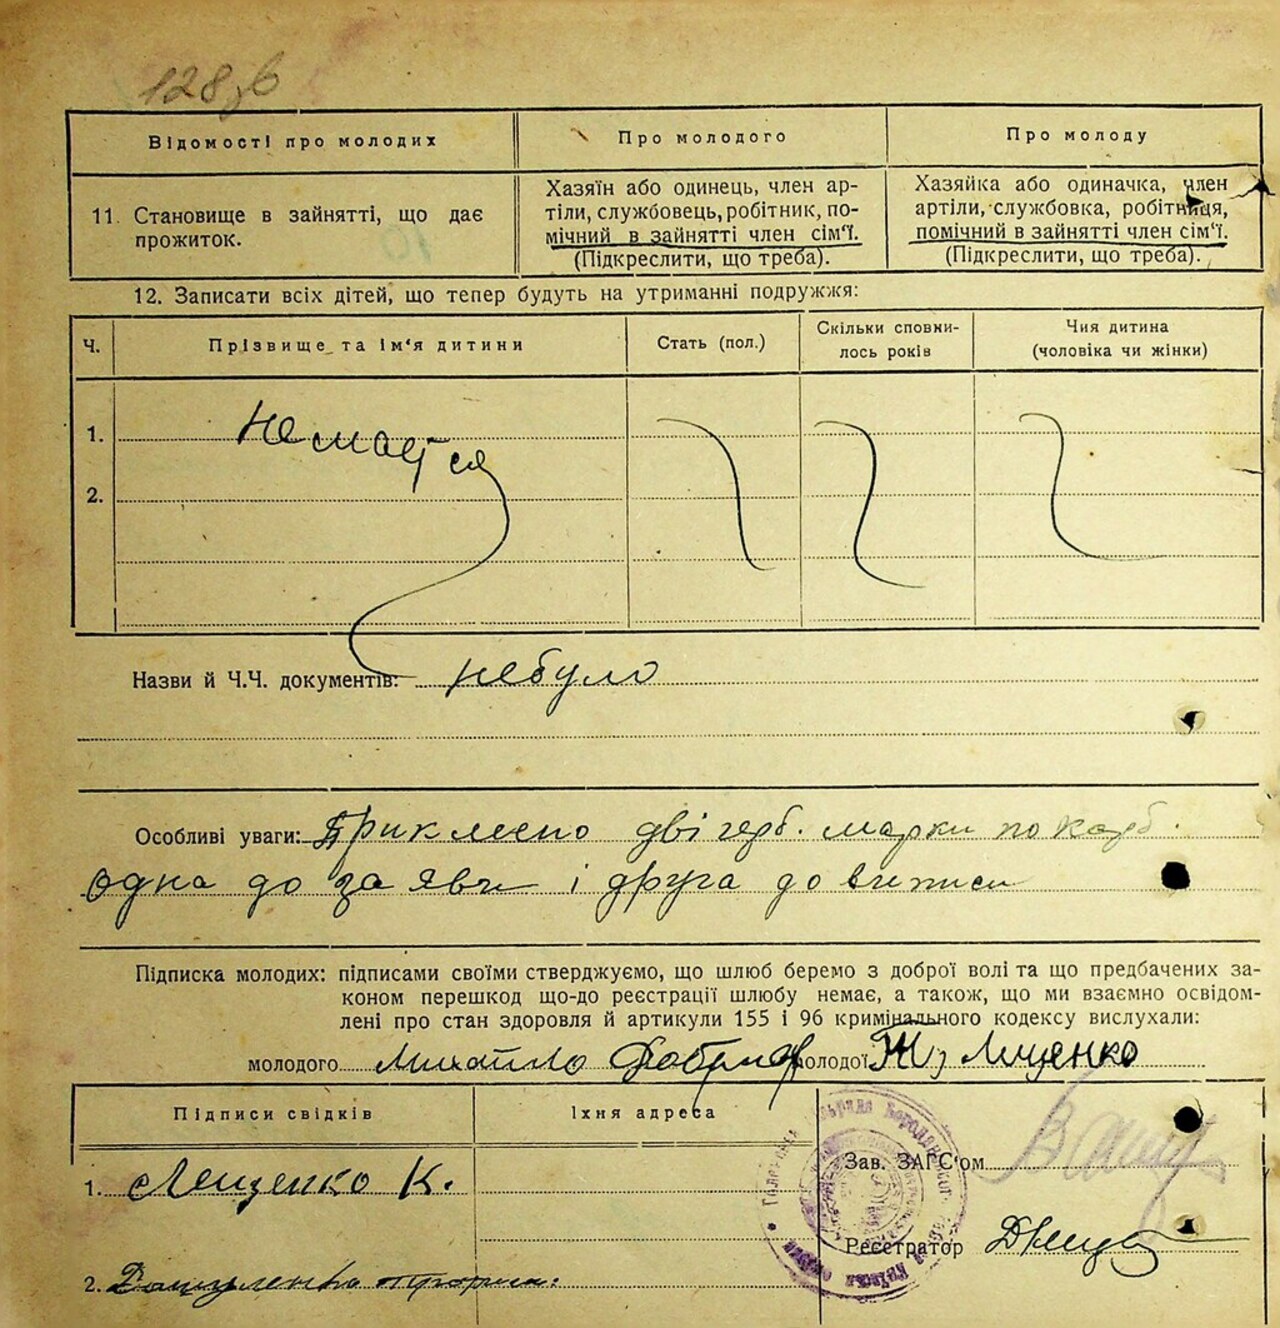 128
Відомості про молодих
Про молодого
Про молоду
11. Становище в зайнятті, що дає
прожиток.
Хазяїн або одинець, член ар-
тіли, службовець, робітник, по-
мічний в зайнятті член сім'ї.
(Підкреслити, що треба).
Хазяйка або одиначка, член
артіли, службовка, робітниця,
помічний в зайнятті член сім'ї.
(Підкреслити, що треба).
12. Записати всіх дітей, що тепер будуть на утриманні подружжя:
Ч.
Прізвище та ім'я дитини
Стать (пол.)
Скільки сповни-
лось років
Чия дитина
(чоловіка чи жінки)
1.
Немається
2.
Назви й Ч.Ч. документів: небуло
Особливі уваги: Приклеєно дві герб. марки по карб.
одна до заяви і друга до виписи
Підписка молодих: підписами своїми стверджуємо, що шлюб беремо з доброї волі та що предбачених за-
коном перешкод що-до реєстрації шлюбу немає, а також, що ми взаємно освідом-
лені про стан здоровля й артикули 155 і 96 кримінального кодексу вислухали:
молодого Михайло молодої Лищенко
Підписи свідків
Їхня адреса
1. Лещенко К.
Зав. ЗАГС'ом
Реєстратор
2.